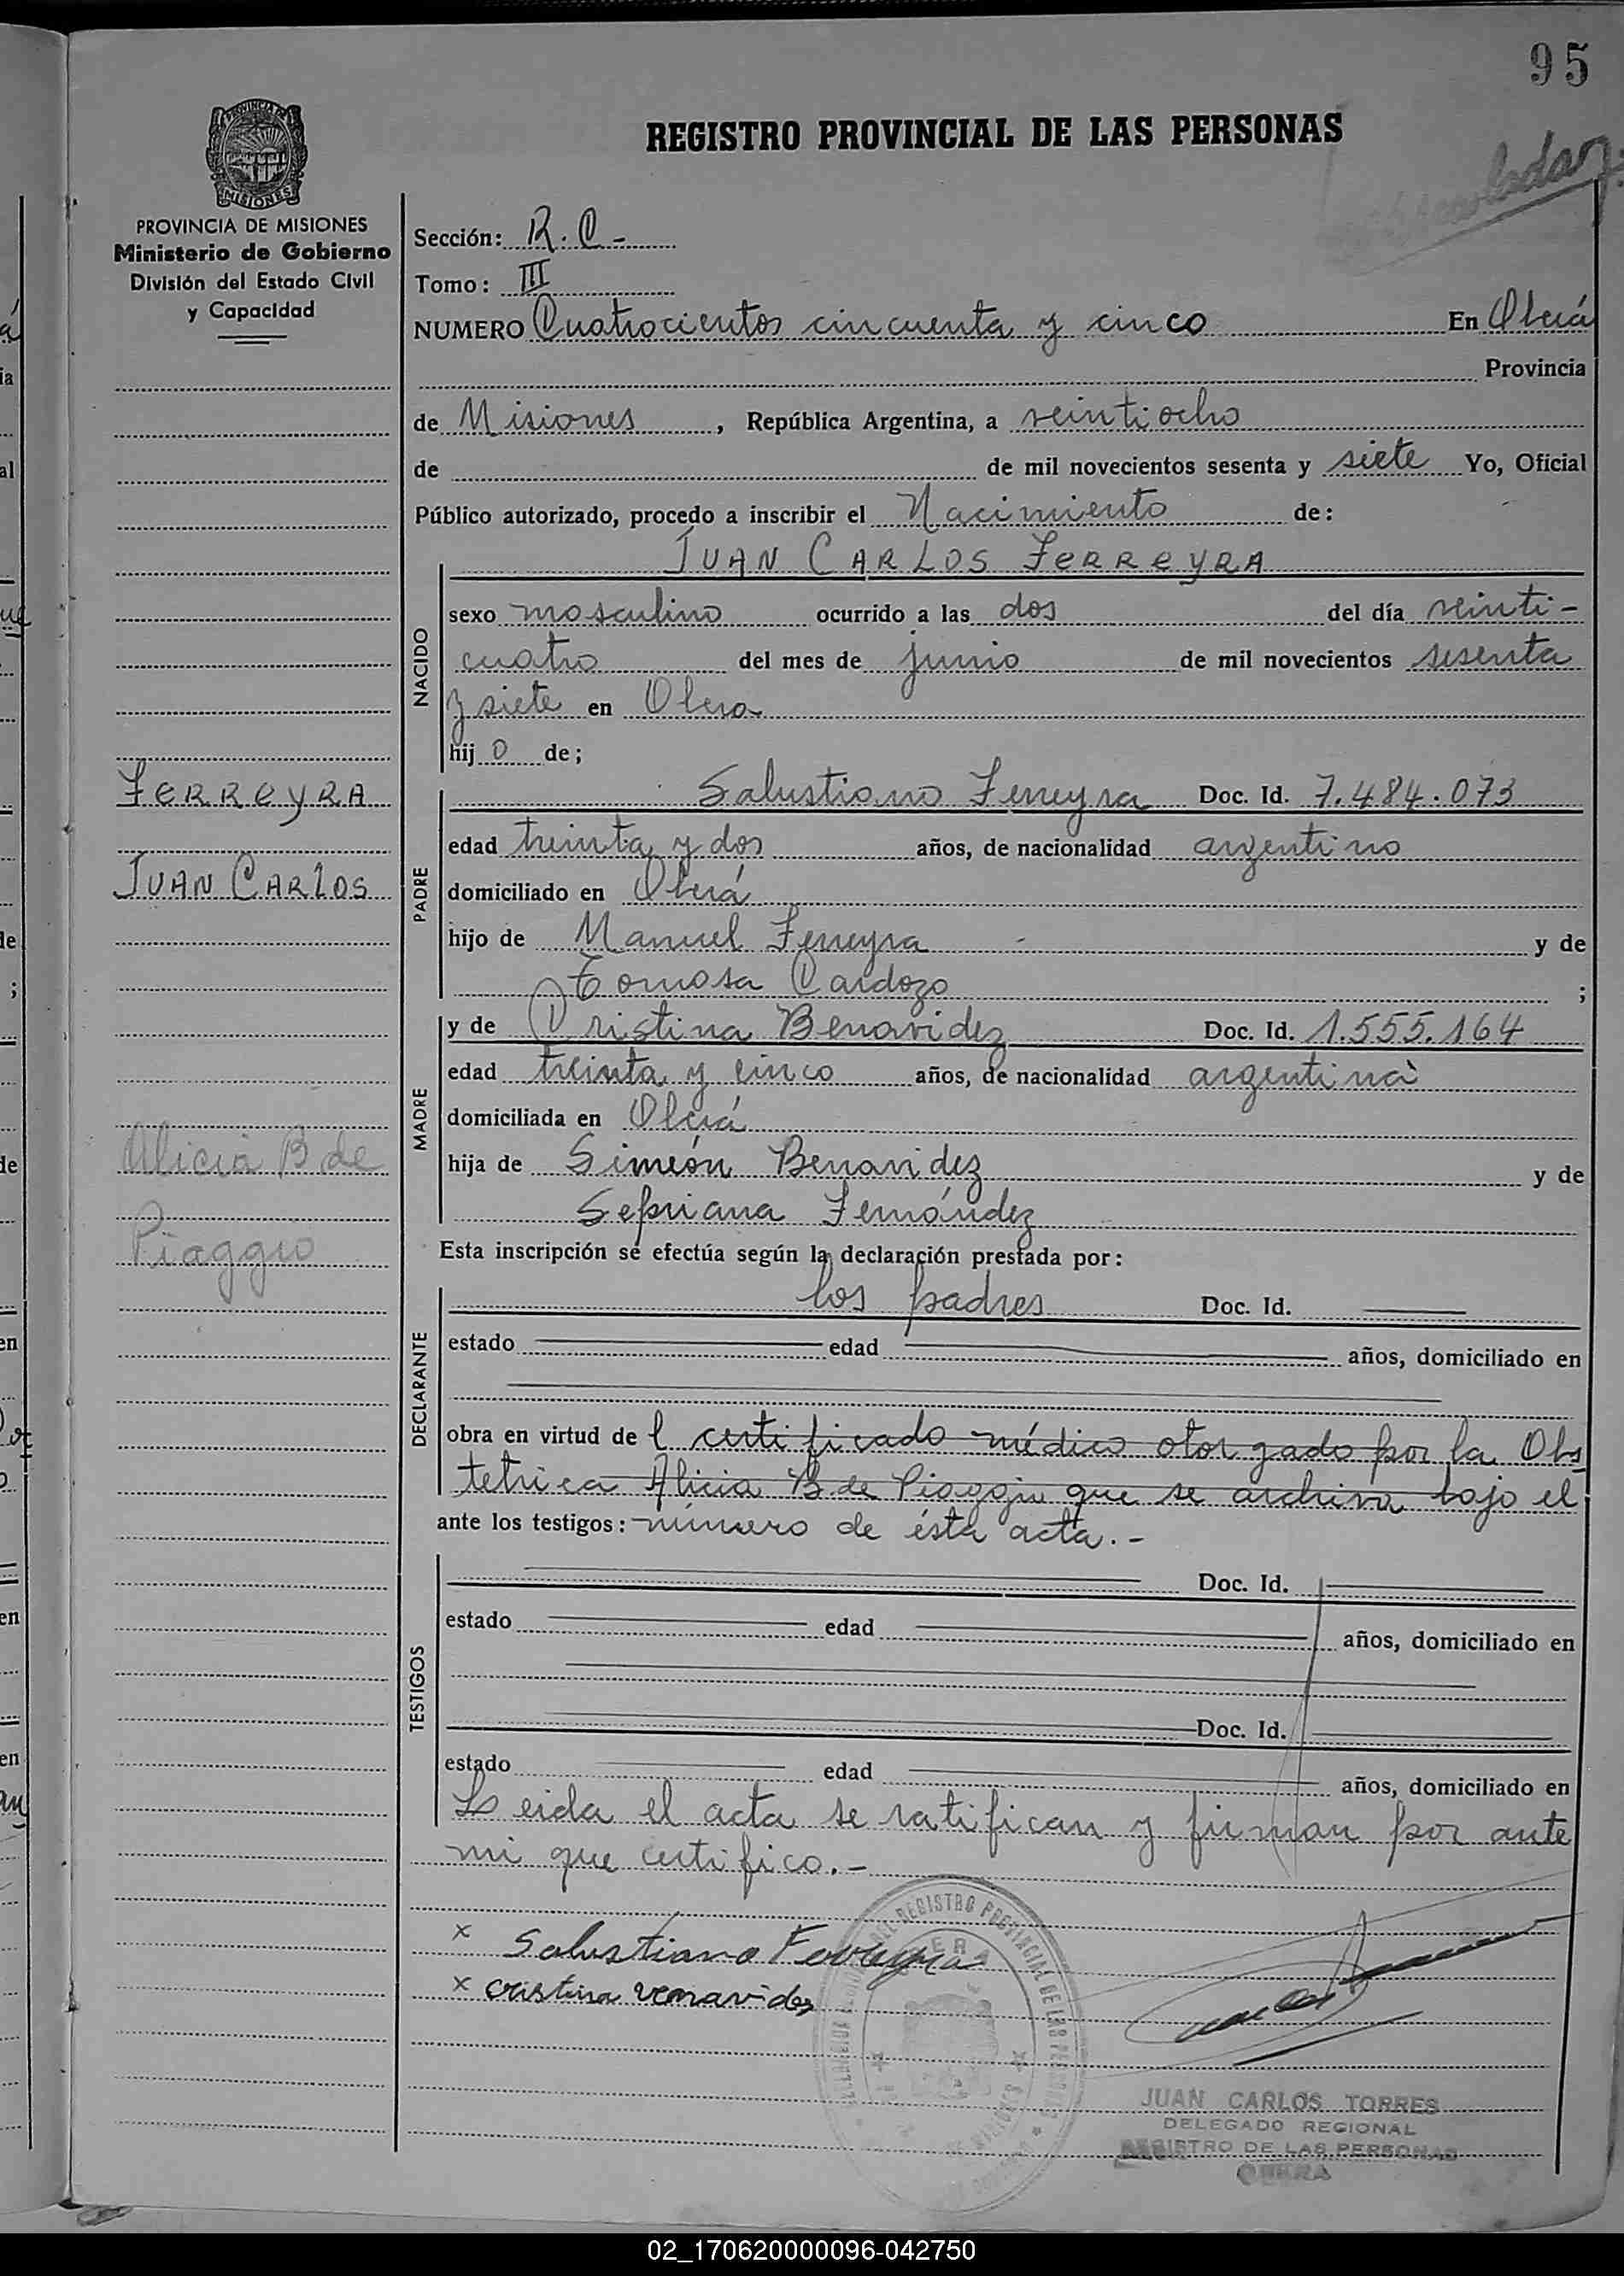 95
REGISTRO PROVINCIAL DE LAS PERSONAS
PROVINCIA DE MISIONES
Ministerio de Gobierno
División del Estado Civil
y Capacidad
Sección: R. C -
Tomo: III
NUMERO Cuatrocientos cincuenta y cinco En Oberá
Provincia
de Misiones, República Argentina, a veintiocho
de de mil novecientos sesenta y siete Yo, Oficial
Público autorizado, procedo a inscribir el Nacimiento de:
JUAN CARLOS FERREYRA
NACIDO
sexo masculino ocurrido a las dos del día veinti-
cuatro del mes de junio de mil novecientos sesenta
y siete en Obera
hijo de;
FERREYRA
JUAN CARLOS
PADRE
Salustiano Ferreyra Doc. Id. 7.484.073
edad treinta y dos años, de nacionalidad argentino
domiciliado en Oberá
hijo de Manuel Ferreyra y de
Tomasa Cardozo ;
MADRE
y de Cristina Benavidez Doc. Id. 1.555.164
edad treinta y cinco años, de nacionalidad argentina
domiciliada en Oberá
Alicia B de
Piaggio
hija de Simeón Benavidez y de
Sepriana Fernández
Esta inscripción se efectúa según la declaración prestada por:
DECLARANTE
los padres Doc. Id.
estado edad años, domiciliado en
obra en virtud del certificado médico otorgado por la Obs
tetrica Alicia B. de Piaggio que se archiva bajo el
ante los testigos: número de ésta acta.-
TESTIGOS
Doc. Id.
estado edad años, domiciliado en
Doc. Id.
estado edad años, domiciliado en
Leida el acta se ratifican y firman por ante
mi que certifico.-
x Salustiano Ferreyra
x cristina venavides
JUAN CARLOS TORRES
DELEGADO REGIONAL
REGISTRO DE LAS PERSONAS
OBERA
02_170620000096-042750